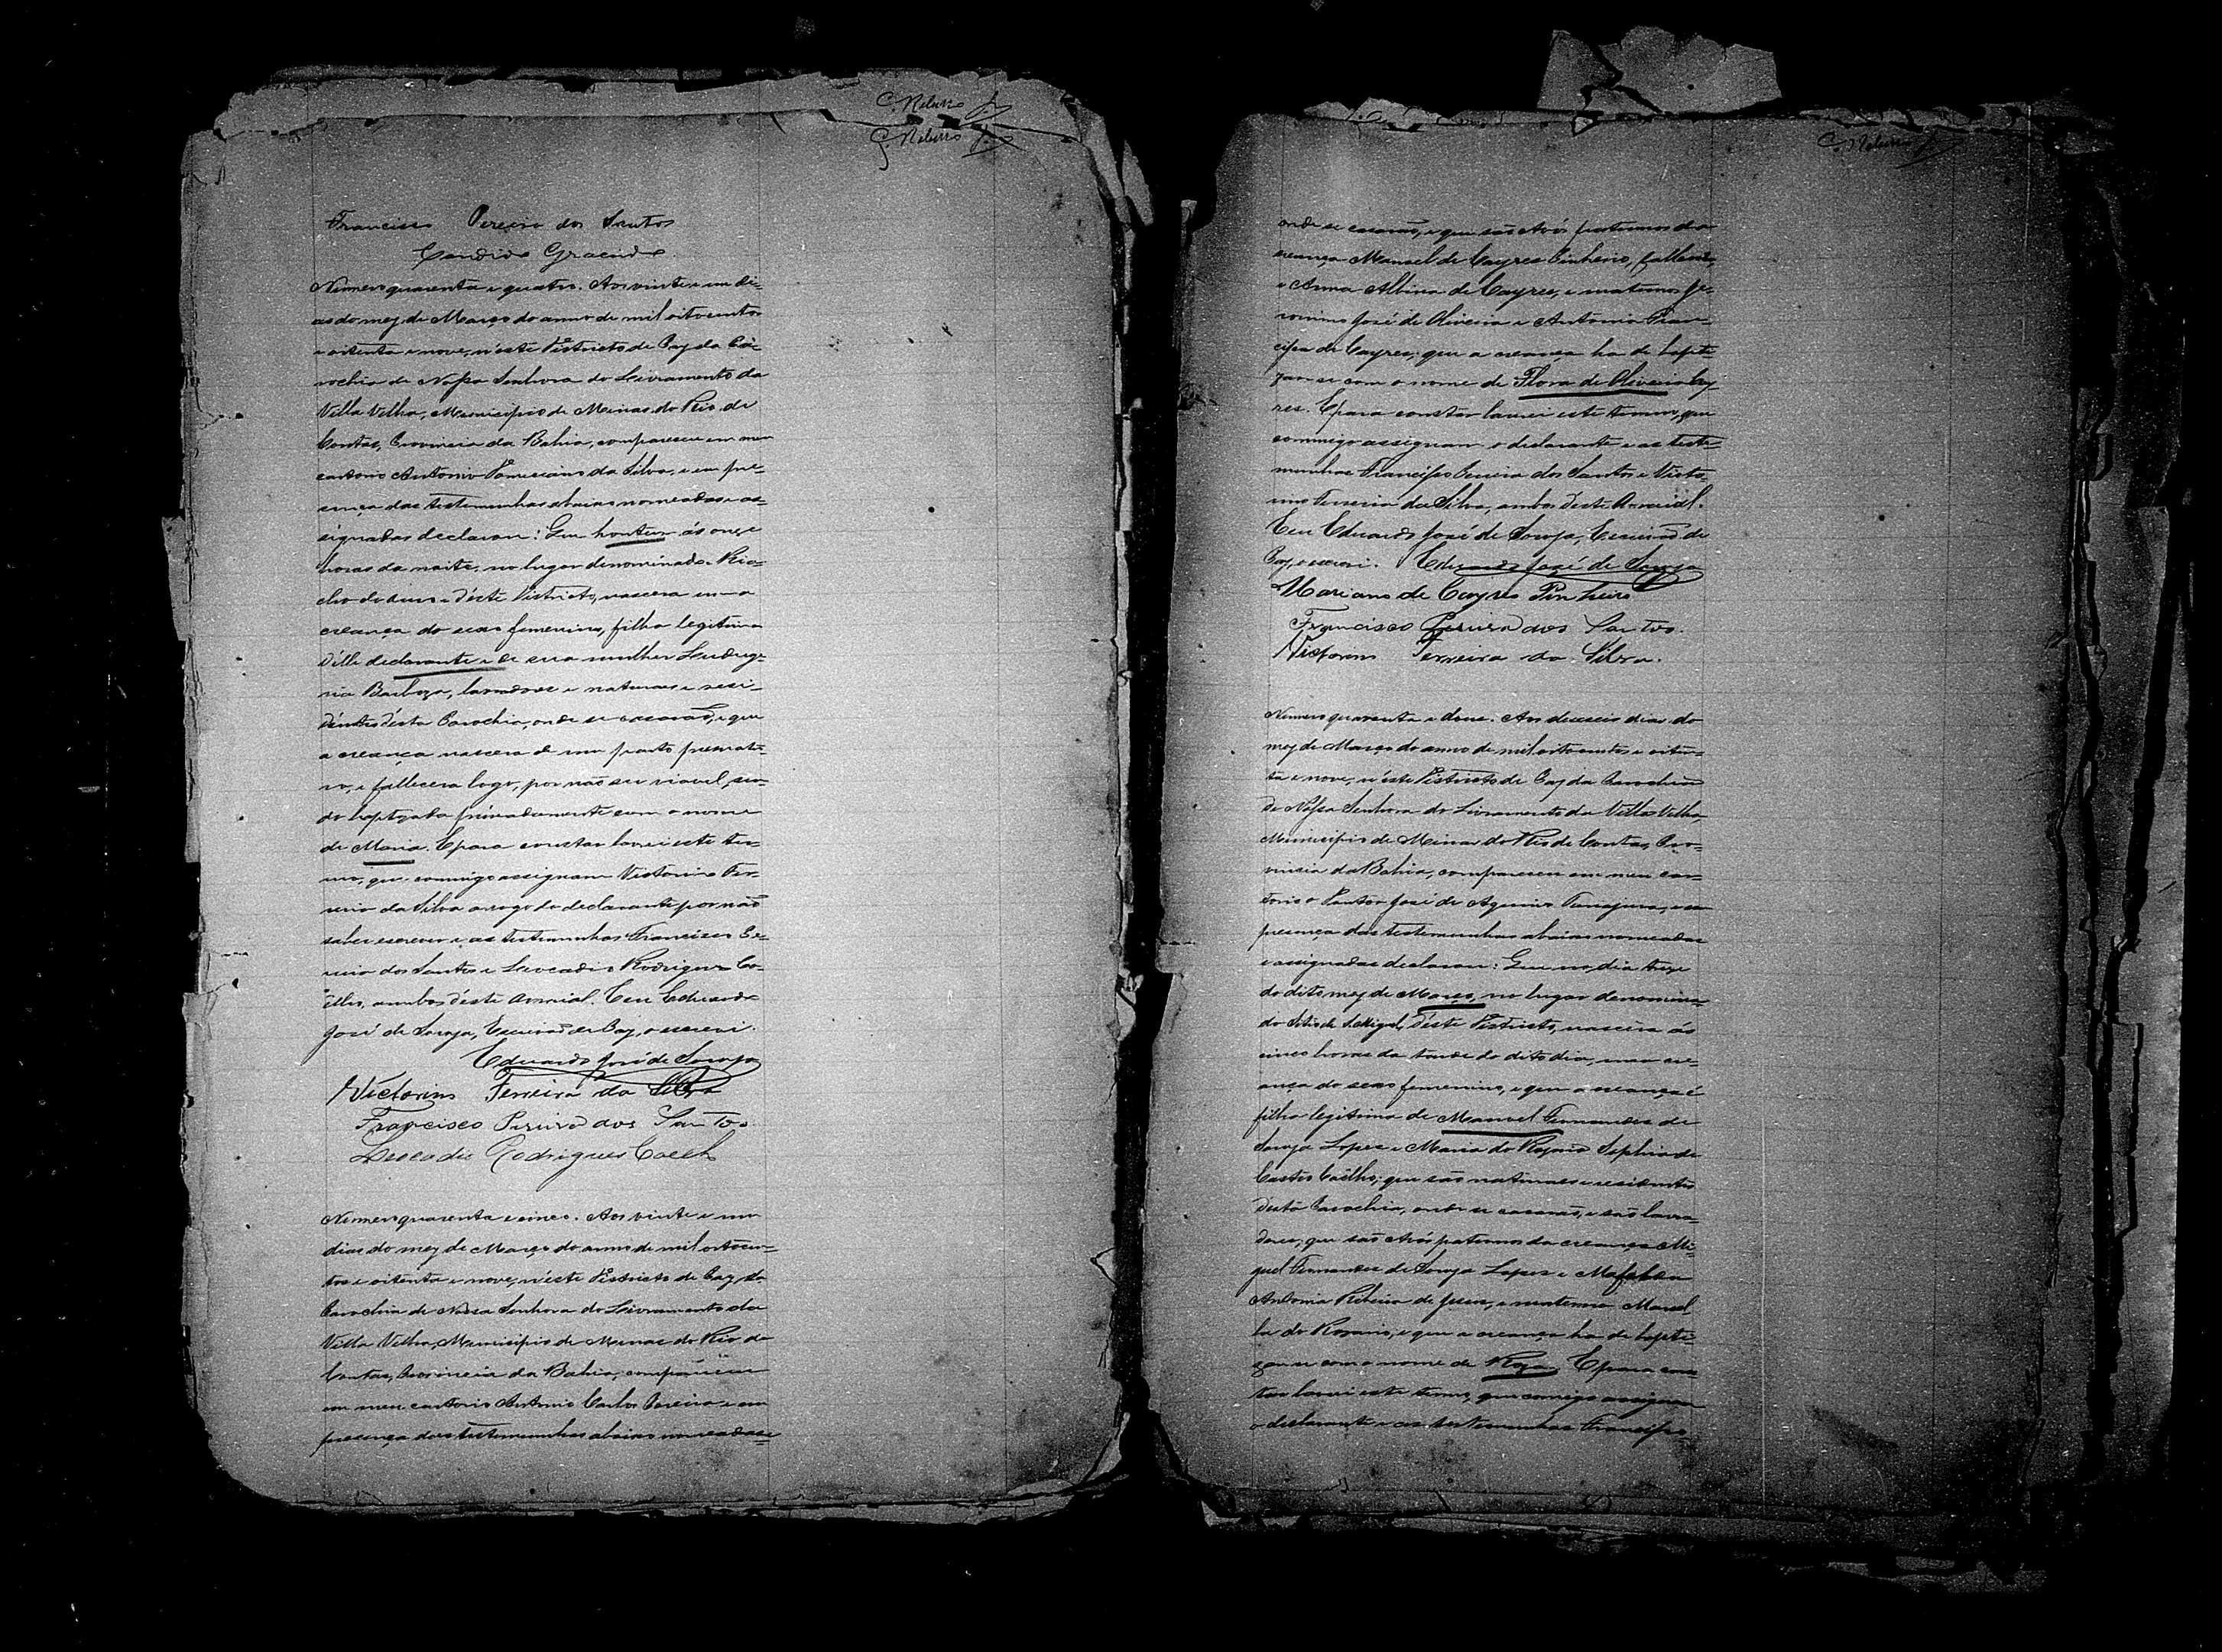 C. Ribeiro Jr.
C. Ribeiro Jr.
Francisco Pereira dos Santos
Candido Gracindo
Numero quarenta e quatro. Aos vinte e um di-
as do mez de Março do anno de mil oitocentos
e oitenta e nove, n'este Districto de Paz da Pa-
rochia de Nossa Senhora do Livramento da
Villa Velha, Municipio de Minas do Rio de
Contas, Provincia da Bahia, compareceu em meu
cartorio Antonio da Silva, e em pre-
sença das testemunhas abaixo nomeadas e as-
signadas declarou: Que hontem ás onze
horas da noite, no lugar denominado Ria-
cho d'este Districto, nascera uma
creança do sexo femenino, filha legitima
d'elle declarante e de sua mulher
Barboza, lavradores e naturaes e resi-
dentes d'esta Parochia, onde se casarão, e que
a creança nascera de um parto prematu-
ro, e fallecera logo, por não ser viavel, sen-
do baptizada privadamente com o nome
de Maria. E para constar lavrei este ter-
mo, que commigo assignam Victorino Fer-
reira da Silva a rogo do declarante por não
saber escrever e as testemunhas Francisco Pe-
reira dos Santos e Leocadio Rodrigues Co-
êlho, ambos d'este Arraial. Eu Eduardo
José de Souza, Escrivão de Paz, o escrevi.
Eduardo José de Souza
Victorino Ferreira da Silva
Francisco Pereira dos Santos.
Leocadio Rodrigues Coelho
Numero quarenta e cinco. Aos vinte e um
dias do mez de Março do anno de mil oitocen-
tos e oitenta e nove, n'este Districto de Paz da
Parochia de Nossa Senhora do Livramento da
Villa Velha, Municipio de Minas do Rio de
Contas, Provincia da Bahia, compareceu
em meu cartorio Antonio Carlos Pereira e em
presença das testemunhas abaixo nomeadas e
C. Ribeiro Jr.
onde se casarão, e que são Avós paternos da
creança Manoel de Cayres Pinheiro, fallecido,
e Anna Albina de Cayres, e maternos Je-
ronimo José de Oliveira e Antonia Fran-
cisca de Cayres; que a creança ha de bapti-
zar-se com o nome de Flora de Oliveira Cay-
res. E para constar lavrei este termo, que
commigo assignam o declarante e as teste-
munhas Francisco Pereira dos Santos e Victo-
rino Ferreira da Silva, ambos d'este Arraial.
Eu Eduardo José de Souza, Escrivão de
Paz, o escrevi. Eduardo José de Souza
Mariano de Cayres Pinheiro
Francisco Pereira dos Santos.
Victorino Ferreira da Silva.
Numero quarenta e dous. Aos dezeseis dias do
mez de Março do anno de mil oitocentos e oiten-
ta e nove, n'este Districto de Paz da Parochia
de Nossa Senhora do Livramento da Villa Velha,
Municipio de Minas do Rio de Contas, Pro-
vincia da Bahia, compareceu em meu car-
torio o Doutor José de Aquino Tanajura, e em
presença das testemunhas abaixo nomeadas
e assignadas declarou: Que no dia treze
do dito mez de Março, no lugar denomina-
do Sitio de S. Miguel, d'este Districto, nascera ás
cinco horas da tarde do dito dia, uma cre-
ança do sexo femenino, e que a creança é
filha legitima de Manoel Fernandes de
Souza Lopes e Maria do Rozario Sophia de
Castro Coêlho; que são naturaes e residentes
d'esta Parochia, onde se casarão, e são lavra-
dores; que são Avós paternos da creança Mi-
guel Fernandes de Souza Lopes e Mafalda
Antonia Ribeiro de Jesus, e materna Marcel-
la do Rozario, e que a creança ha de bapti-
zar-se com o nome de Roza. E para cons-
tar lavrei este termo, que comigo assignam
o declarante e as testemunhas Francisco